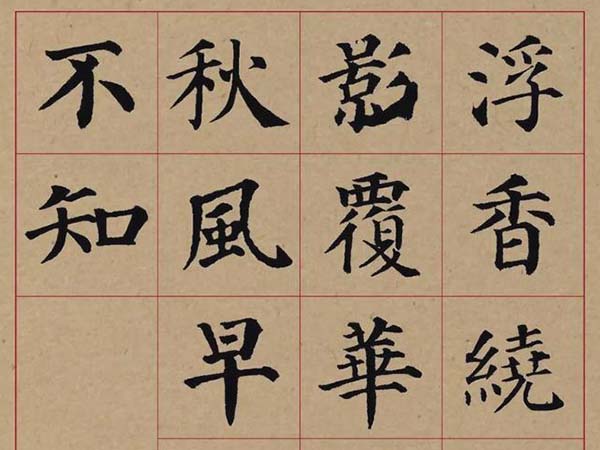 浮香繞
影覆華
秋風早
不知